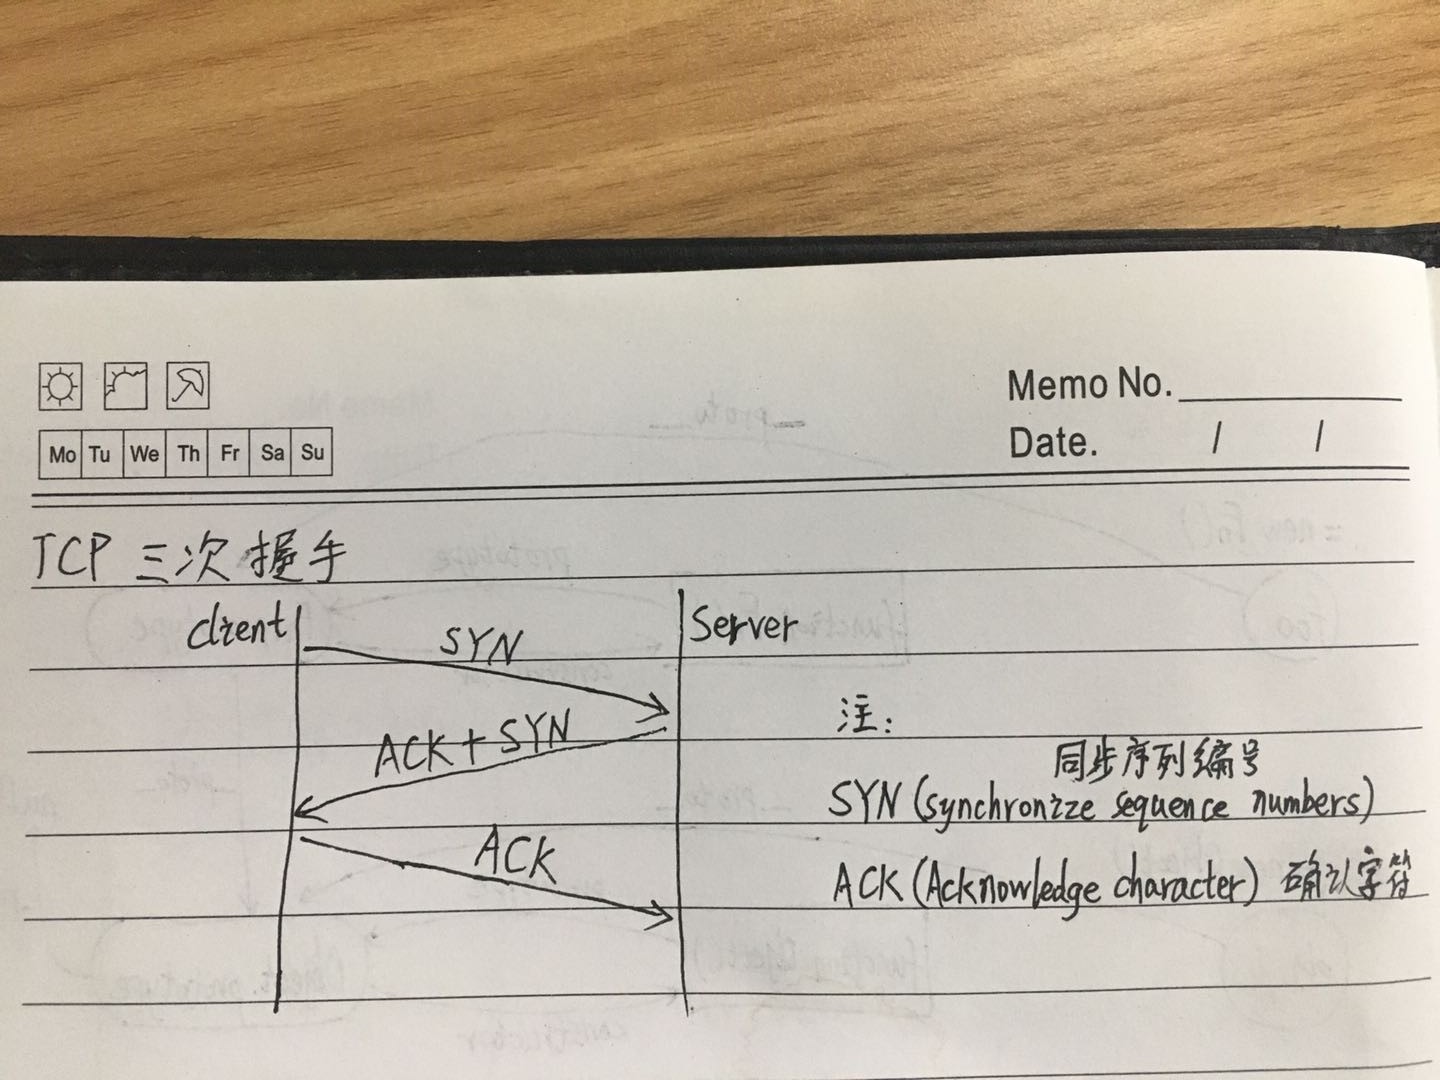 Memo No.
Date. / /
Mo Tu We Th Fr Sa Su
TCP 三次握手
client
Server
SYN
ACK + SYN
ACK
注:
同步序列编号
SYN (synchronize sequence numbers)
ACK (Acknowledge character) 确认字符